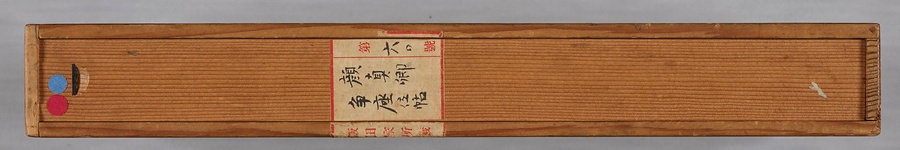 第六〇號
顔真卿
争座位帖